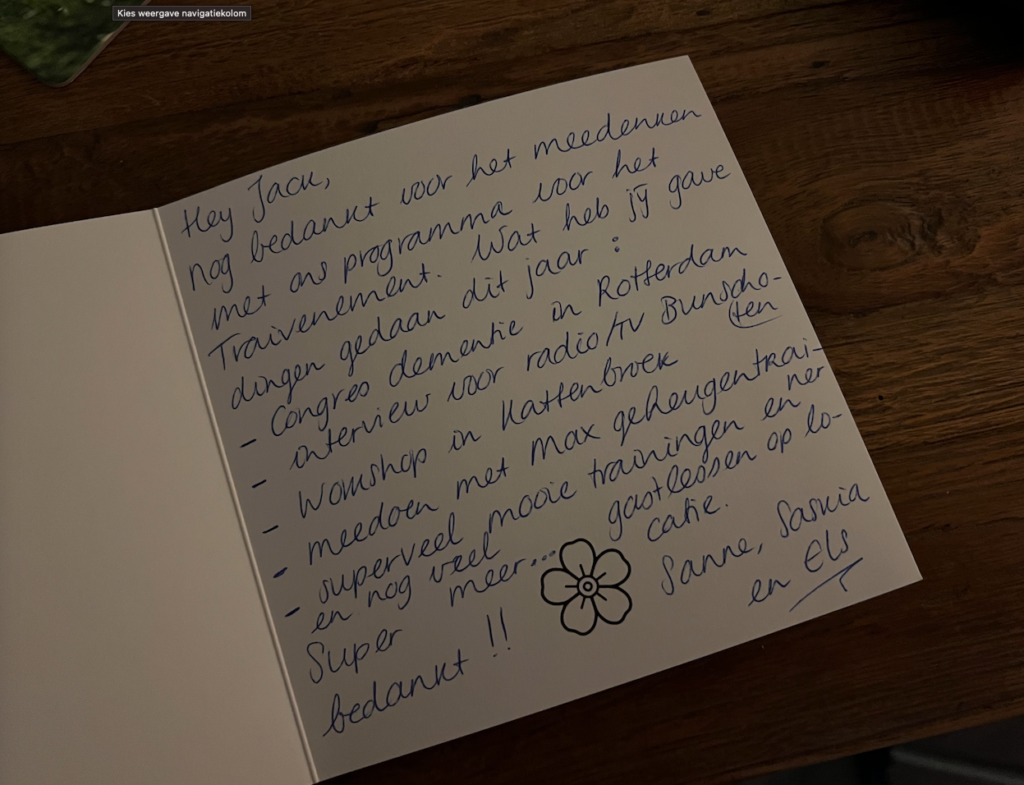 Kies weergave navigatiekolom
Hey Jack,
nog bedankt voor het meedenken
met ons programma voor het
Traivenement. Wat heb jij gave
dingen gedaan dit jaar :
- Congres dementie in Rotterdam
- interview voor radio/TV Bunscho-
ten
- Workshop in Kattenbroek
- meedoen met Max geheugentrai-
ner
- superveel mooie trainingen en
gastlessen op lo-
catie.
en nog veel
meer...
Super
bedankt !!
Sanne, Saskia
en Els